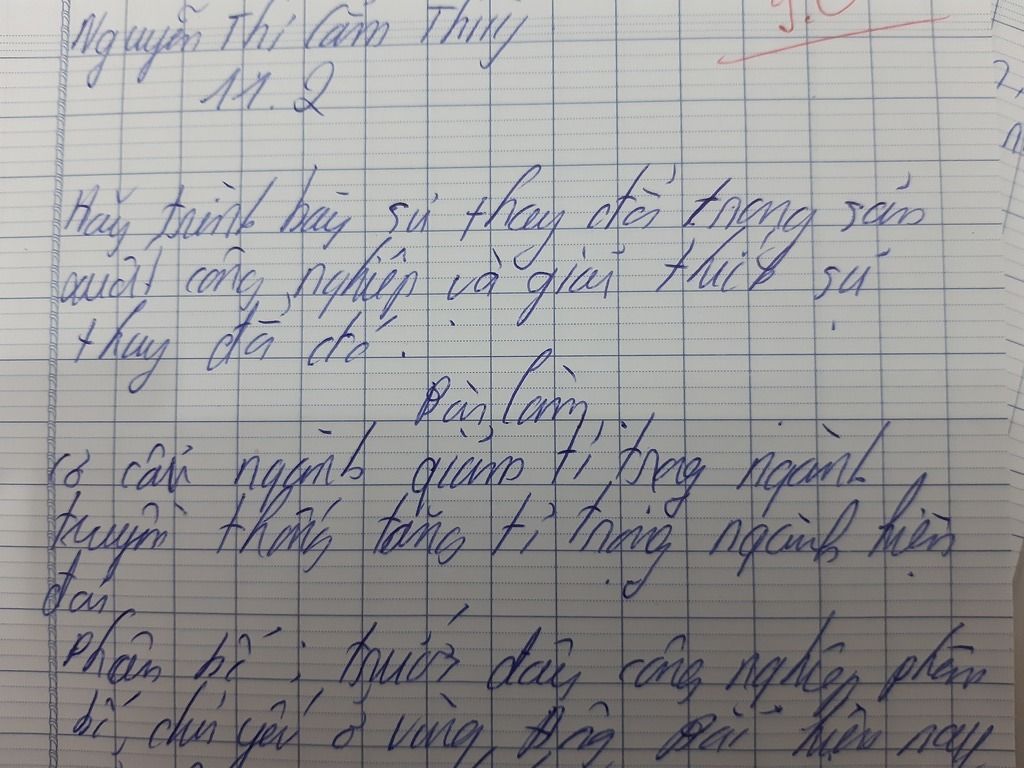 Nguyễn Thị Cẩm Thúy
11.2
Hãy trình bày sự thay đổi trong sản
xuất công nghiệp và giải thích sự
thay đổi đó.
Bài làm
Cơ cấu ngành giảm tỉ trọng ngành
truyền thống tăng tỉ trọng ngành hiện
đại
Phân bố : trước đây công nghiệp phân
bố chủ yếu ở vùng Đông Bắc hiện nay